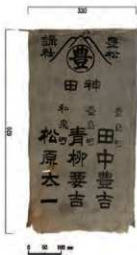 330
620
豊松
講社
豊
神田
田中豊吉
青柳要吉
和泉町
松原太一
0 50 100 mm